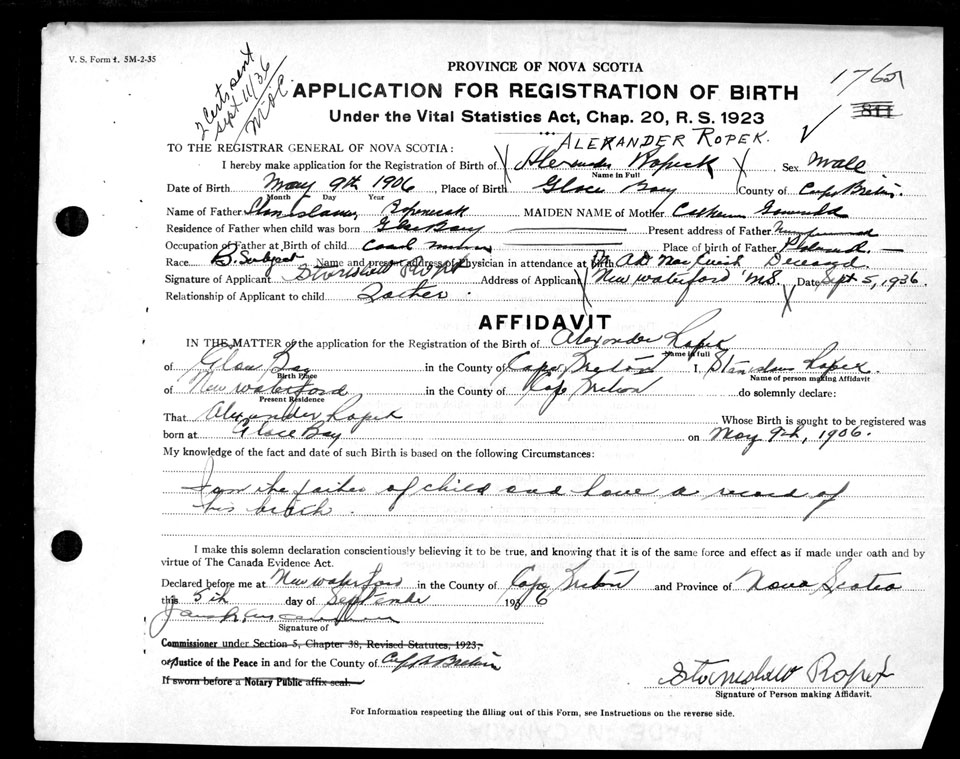 V. S. Form 1. 5M-2-35
2 Certs. sent
Sept 11/36
PROVINCE OF NOVA SCOTIA
APPLICATION FOR REGISTRATION OF BIRTH
Under the Vital Statistics Act, Chap. 20, R. S. 1923
811
ALEXANDER ROPEK.
TO THE REGISTRAR GENERAL OF NOVA SCOTIA:
I hereby make application for the Registration of Birth of Alexander Sex Male
Name in Full
Date of Birth May 9th 1906, Place of Birth Glace Bay County of Cape Breton
Month Day Year
Name of Father Stanislaus MAIDEN NAME of Mother
Residence of Father when child was born Glace Bay Present address of Father
Occupation of Father at Birth of child Coal Place of birth of Father
Race B. Subject Name and present address of Physician in attendance at birth Dr. Deceased
Signature of Applicant Stanislaw Ropek Address of Applicant New Waterford N.S. Date Sept 5, 1936
Relationship of Applicant to child Father.
AFFIDAVIT
IN THE MATTER of the application for the Registration of Birth of Alexander Ropek
Name in full
of Glace Bay in the County of Cape Breton I, Stanislaus Ropek.
Birth Place Name of person making Affidavit
of New Waterford in the County of Cape Breton do solemnly declare:
Present Residence
That Alexander Ropek Whose Birth is sought to be registered was
born at Glace Bay on May 9th, 1906.
My knowledge of the fact and date of such Birth is based on the following Circumstances:
I am the father of child and have a record of
his birth.
I make this solemn declaration conscientiously believing it to be true, and knowing that it is of the same force and effect as if made under oath and by
virtue of The Canada Evidence Act.
Declared before me at New Waterford in the County of Cape Breton and Province of Nova Scotia
this 5th day of September 1936
Signature of
Commissioner under Section 5, Chapter 38, Revised Statutes, 1923,
or Justice of the Peace in and for the County of Cape Breton
If sworn before a Notary Public affix seal.
Stanislaw Ropek
Signature of Person making Affidavit.
For Information respecting the filling out of this Form, see Instructions on the reverse side.